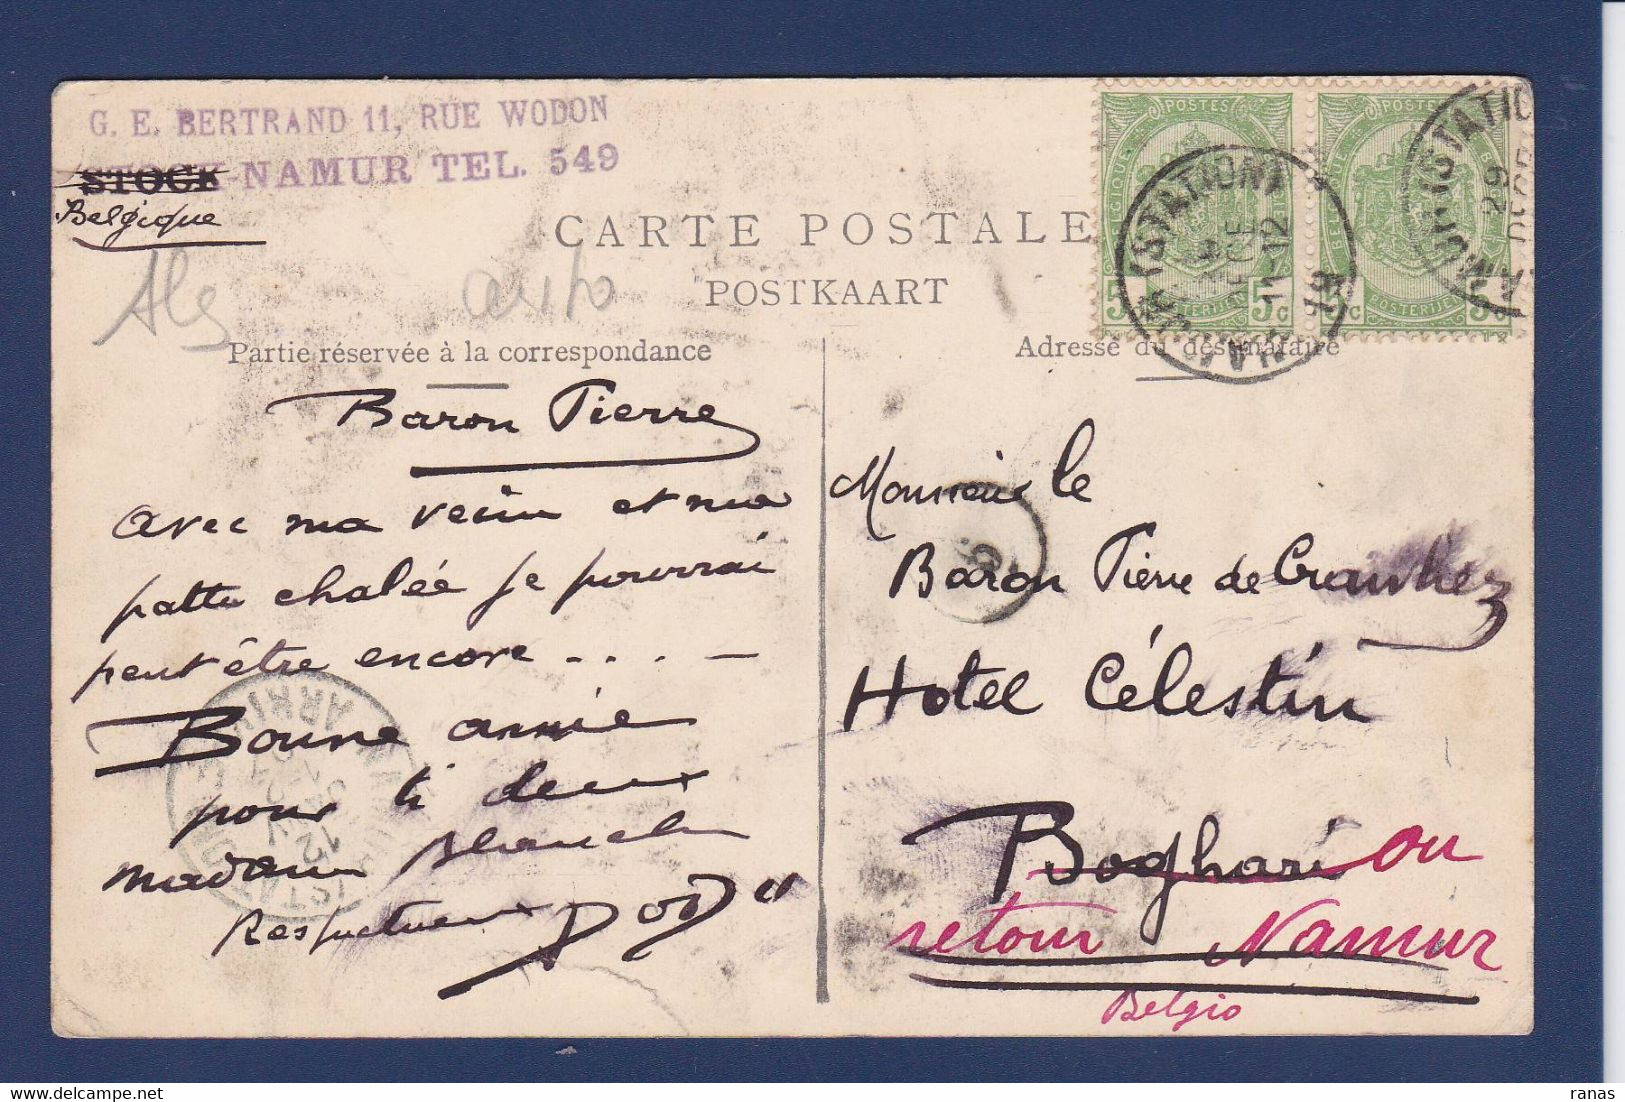 G. E. BERTRAND 11, RUE WODON
STOCK NAMUR TEL. 549
Belgique
CARTE POSTALE
POSTKAART
Partie réservée à la correspondance
Adresse du destinataire
POSTES POSTES
BELGIQUE
5c 5c
POSTERIJEN POSTERIJEN
NAMUR (STATION)
11-12
NAMUR (STATION)
29
Baron Pierre
avec ma et ma
patte je pourrai
peut être encore . . . . –
Bonne année
pour ti deux
madam Blanch
Respectueux DOD"
Monsieur le
Baron Pierre de Crawhez
Hotel Célestin
Boghari ou
retour Namur
Belgio
ranas